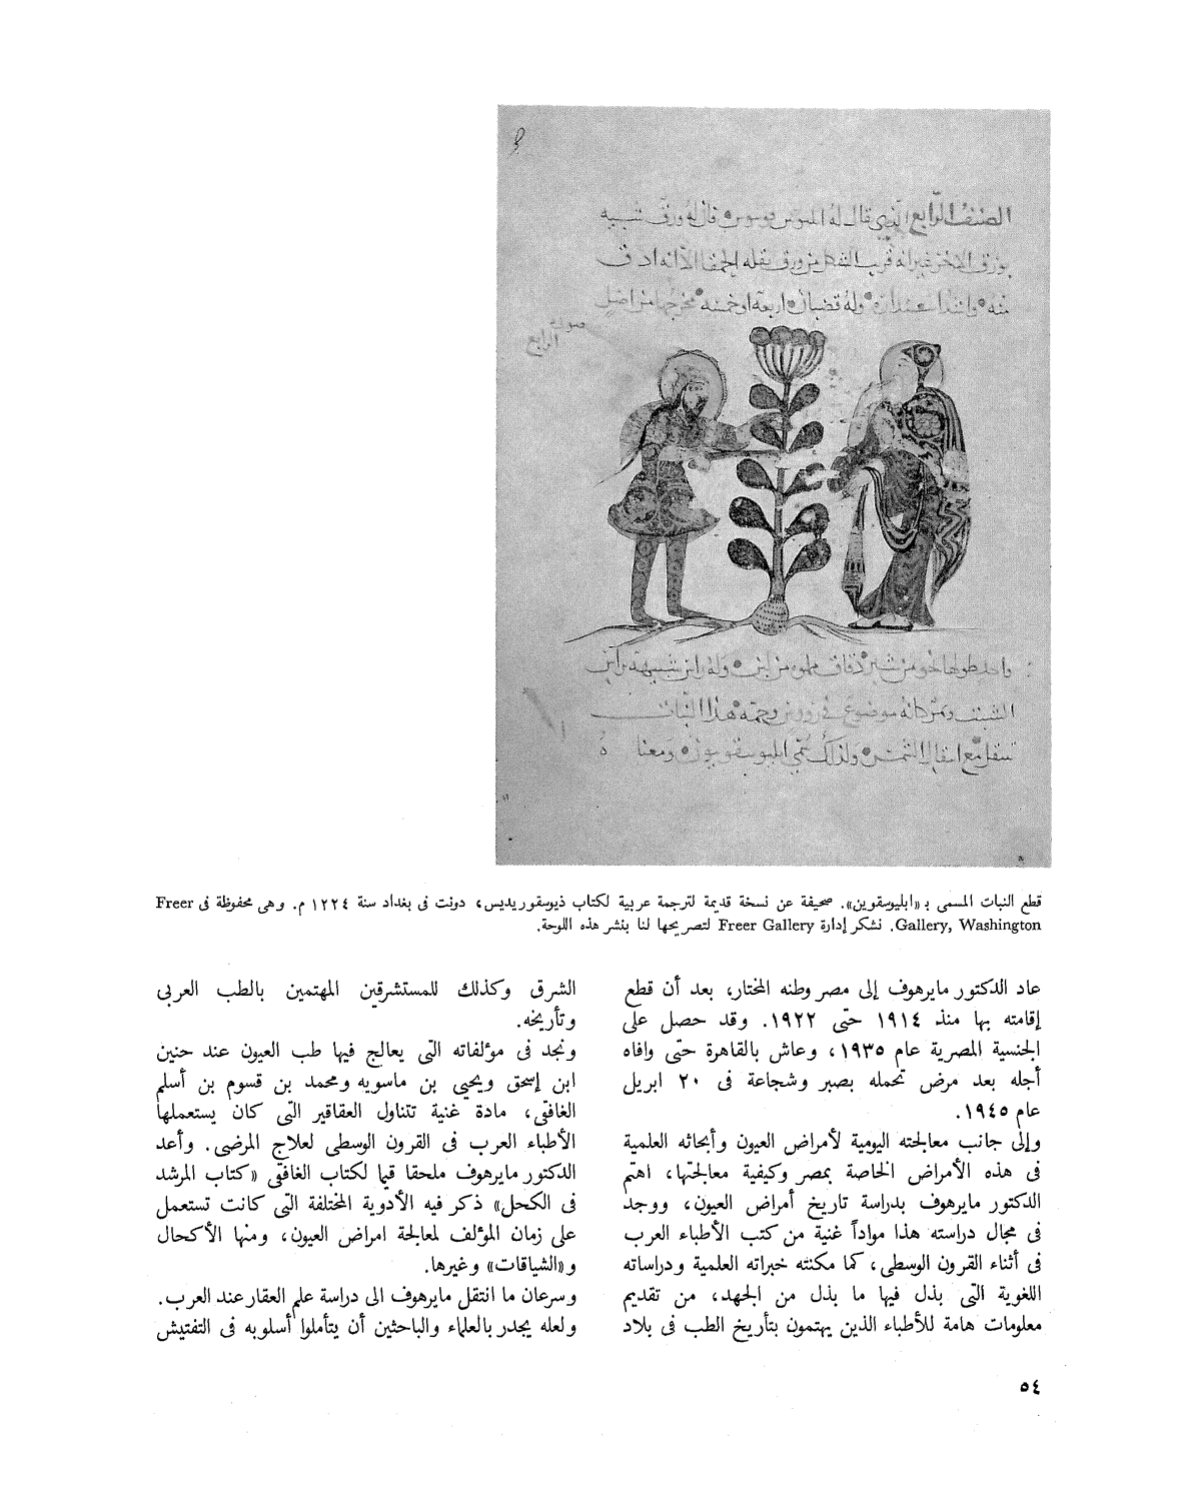 الصنف الرابع الذي يقال له
منه وله قضبان اربعة او خمسة مخرجها من اصل
صورة
الرابع
واحد طولها نحو من شبر دقاق مملوه من لبن وله راس شبيهة براس
الشبث وثمر كانه موضوع في هذا النبات
تنتقل مع انتقال الشمس ولذلك سمي ومعناه
قطع النبات المسمى بـ «ابليوسقوين». صحيفة عن نسخة قديمة لترجمة عربية لكتاب ذيوسقوريديس، دونت فى بغداد سنة ١٢٢٤ م. وهى محفوظة فى Freer
Gallery, Washington. نشكر إدارة Freer Gallery لتصريحها لنا بنشر هذه اللوحة.
عاد الدكتور مايرهوف إلى مصر وطنه المختار، بعد أن قطع
إقامته بها منذ ١٩١٤ حتى ١٩٢٢. وقد حصل على
الجنسية المصرية عام ١٩٣٥، وعاش بالقاهرة حتى وافاه
أجله بعد مرض تحمله بصبر وشجاعة فى ٢٠ ابريل
عام ١٩٤٥.
وإلى جانب معالجته اليومية لأمراض العيون وأبحاثه العلمية
فى هذه الأمراض الخاصة بمصر وكيفية معالجتها، اهتم
الدكتور مايرهوف بدراسة تاريخ أمراض العيون، ووجد
فى مجال دراسته هذا مواداً غنية من كتب الأطباء العرب
فى أثناء القرون الوسطى، كما مكنته خبراته العلمية ودراساته
اللغوية التى بذل فيها ما بذل من الجهد، من تقديم
معلومات هامة للأطباء الذين يهتمون بتأريخ الطب فى بلاد
الشرق وكذلك للمستشرقين المهتمين بالطب العربى
وتأريخه.
ونجد فى مؤلفاته التى يعالج فيها طب العيون عند حنين
ابن إسحق ويحيى بن ماسويه ومحمد بن قسوم بن أسلم
الغافقى، مادة غنية تتناول العقاقير التى كان يستعملها
الأطباء العرب فى القرون الوسطى لعلاج المرضى. وأعد
الدكتور مايرهوف ملحقا قيما لكتاب الغافقى «كتاب المرشد
فى الكحل» ذكر فيه الأدوية المختلفة التى كانت تستعمل
على زمان المؤلف لمعالجة امراض العيون، ومنها الأكحال
و«الشياقات» وغيرها.
وسرعان ما انتقل مايرهوف الى دراسة علم العقار عند العرب.
ولعله يجدر بالعلماء والباحثين أن يتأملوا أسلوبه فى التفتيش
٥٤